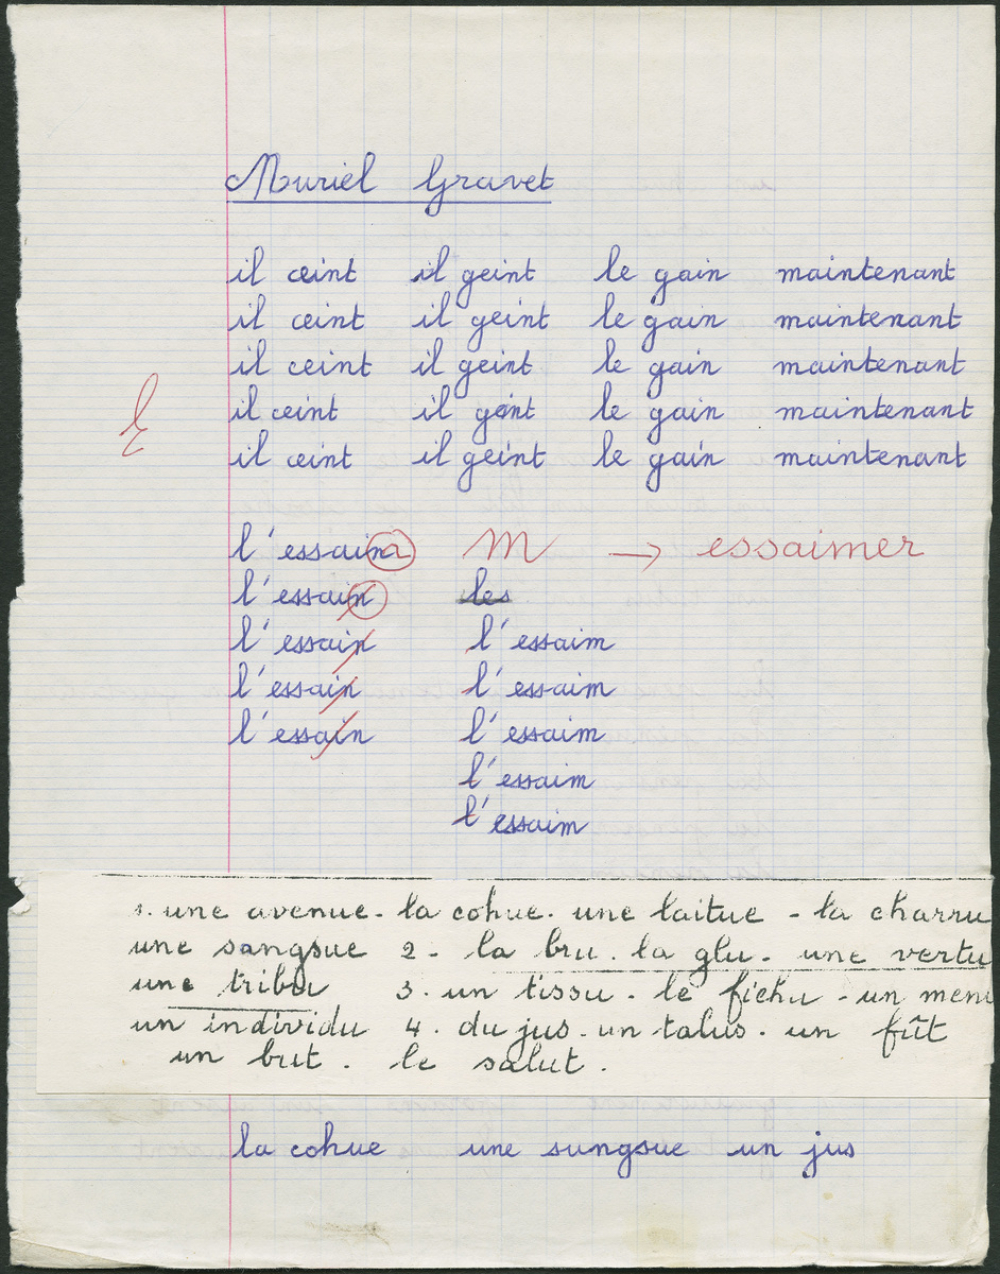 Muriel Gravet
il ceint il geint le gain maintenant
il ceint il geint le gain maintenant
il ceint il geint le gain maintenant
il ceint il geint le gain maintenant
il ceint il geint le gain maintenant
l'essain m → essaimer
l'essain les
l'essain l'essaim
l'essain l'essaim
l'essain l'essaim
l'essaim
l'essaim
1. une avenue - la cohue - une laitue - la charru
une sangsue 2 - la bru - la glu - une vertu
une tribu 3 - un tissu - le fichu - un menu
un individu 4 - du jus - un talus - un fût
un but - le salut.
la cohue une sungsue un jus